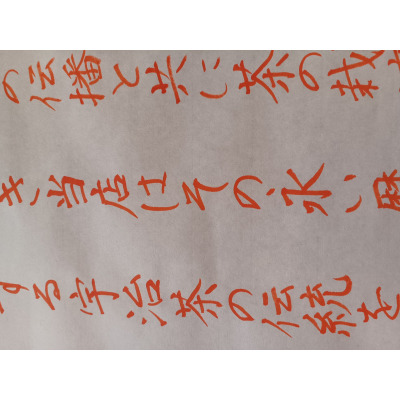 の伝播と共に茶の栽
当店はその永い歴
する宇治茶の伝統を